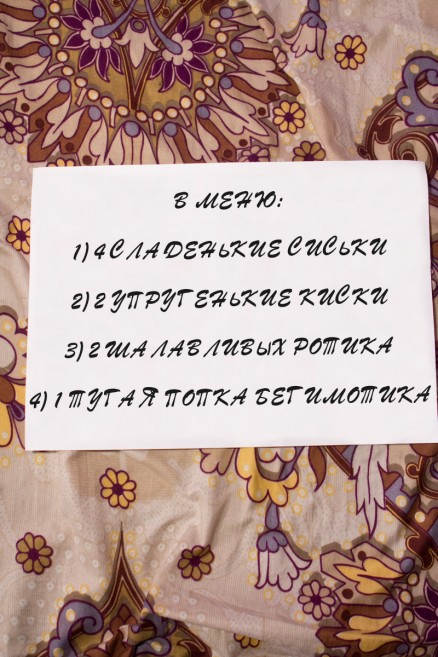 В МЕНЮ:
1) 4 СЛАДЕНЬКИЕ СИСЬКИ
2) 2 УПРУГЕНЬКИЕ КИСКИ
3) 2 ШАЛАВЛИВЫХ РОТИКА
4) 1 ТУГАЯ ПОПКА БЕГИМОТИКА